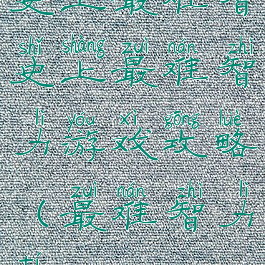 史上最难智
shǐ shàng zuì nán zhì
史上最难智
lì yóu xì gōng lüè
力游戏攻略
zuì nán zhì lì
(最难智力